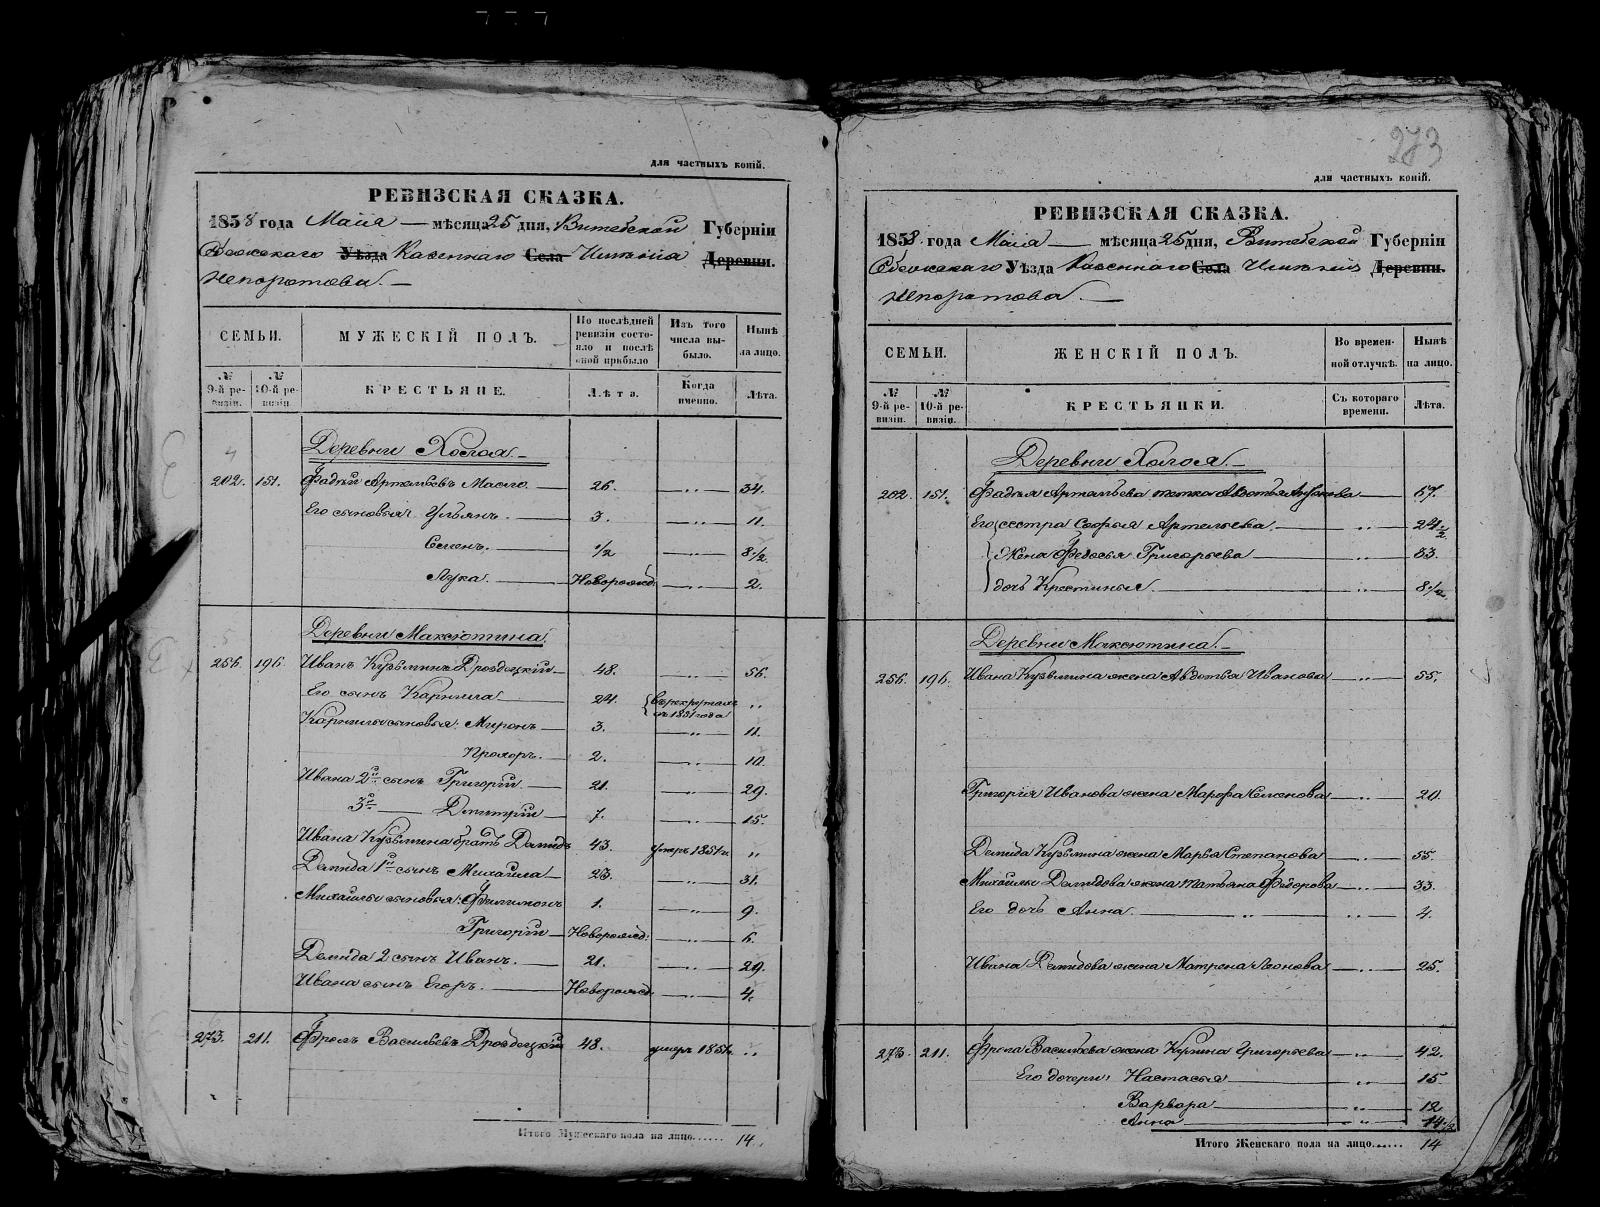 для частныхъ копій.
РЕВИЗСКАЯ СКАЗКА.
1858 года Маiя — мѣсяца 25 дня, Витебской Губерніи
Себежскаго Уѣзда Казеннаго Села Имѣнія Деревни.
Непоротова. —
СЕМЬИ. МУЖЕСКІЙ ПОЛЪ. По послѣдней ревизіи состояло и послѣ оной прибыло Изъ того числа выбыло. Нынѣ на лицо.
№ 9-й ревизіи. № 10-й ревизіи. КРЕСТЬЯНЕ. Лѣта. Когда именно. Лѣта.
Деревни Холоя. —
202. 151. Фадѣй Артемьевъ Масло — 26. — „ — 34.
Его сыновья: Ульянъ. — 3. — „ — 11.
Семенъ. — 1/2 — „ — 8 1/2.
Лука. — Новорожд: — „ — 2.
Деревни Максютина.
256. 196. Иванъ Кузьминъ Дроздецкій — 48. — „ — 56.
Его сынъ Карнила — 24. въ рекрутахъ съ 1851 года „
Карнилы сыновья: Миронъ — 3. — „ — 11.
Прохоръ. — 2. — „ — 10.
Ивана 2й сынъ Григорій. — 21. — „ — 29.
3й — Дмитрій — 7. — „ — 15.
Ивана Кузьмина братъ Демидъ 43. умеръ 1851г. „
Демида 1й сынъ Михайла — 23. — „ — 31.
Михайлы сыновья: Филимонъ 1. — „ — 9.
Григорій — Новорожд: — „ — 6.
Демида 2 сынъ Иванъ. — 21. — „ — 29.
Ивана сынъ Егоръ. — Новорожд. — „ — 4.
273. 211. Фролъ Васильевъ Дроздецкій 48. умеръ 1851г. „
Итого Мужескаго пола на лицо...... 14.
273
для частныхъ копій.
РЕВИЗСКАЯ СКАЗКА.
1858 года Маiя — мѣсяца 25 дня, Витебской Губерніи
Себежскаго Уѣзда Казеннаго Села Имѣнія Деревни.
Непоротова. —
СЕМЬИ. ЖЕНСКІЙ ПОЛЪ. Во временной отлучкѣ. Нынѣ на лицо.
№ 9-й ревизіи. № 10-й ревизіи. КРЕСТЬЯНКИ. Съ котораго времени. Лѣта.
Деревни Холоя. —
202. 151. Фадѣя Артемьева тетка Авдотья — „ — 67.
Его сестра Софья Артемьева. — „ — 24 1/2
Жена Федосья Григорьева — „ — 33
дочь Крестинья. — „ — 8 1/2.
Деревни Максютина. —
256. 196. Ивана Кузьмина жена Авдотья Иванова — „ — 55.
Григорія Иванова жена Марфа Семенова — „ — 20.
Демида Кузьмина жена Марья Степанова — „ — 55.
Михайлы Демидова жена Татьяна Федорова — „ — 33.
Его дочь Анна. — „ — 4.
Ивана Демидова жена Матрена Леонова — „ — 25.
273. 211. Фрола Васильева жена Кулина Григорьева — „ — 42.
Его дочери: Настасья — „ — 15.
Варвара — „ — 12
Анна — „ — 14 1/2
Итого Женскаго пола на лицо...... 14